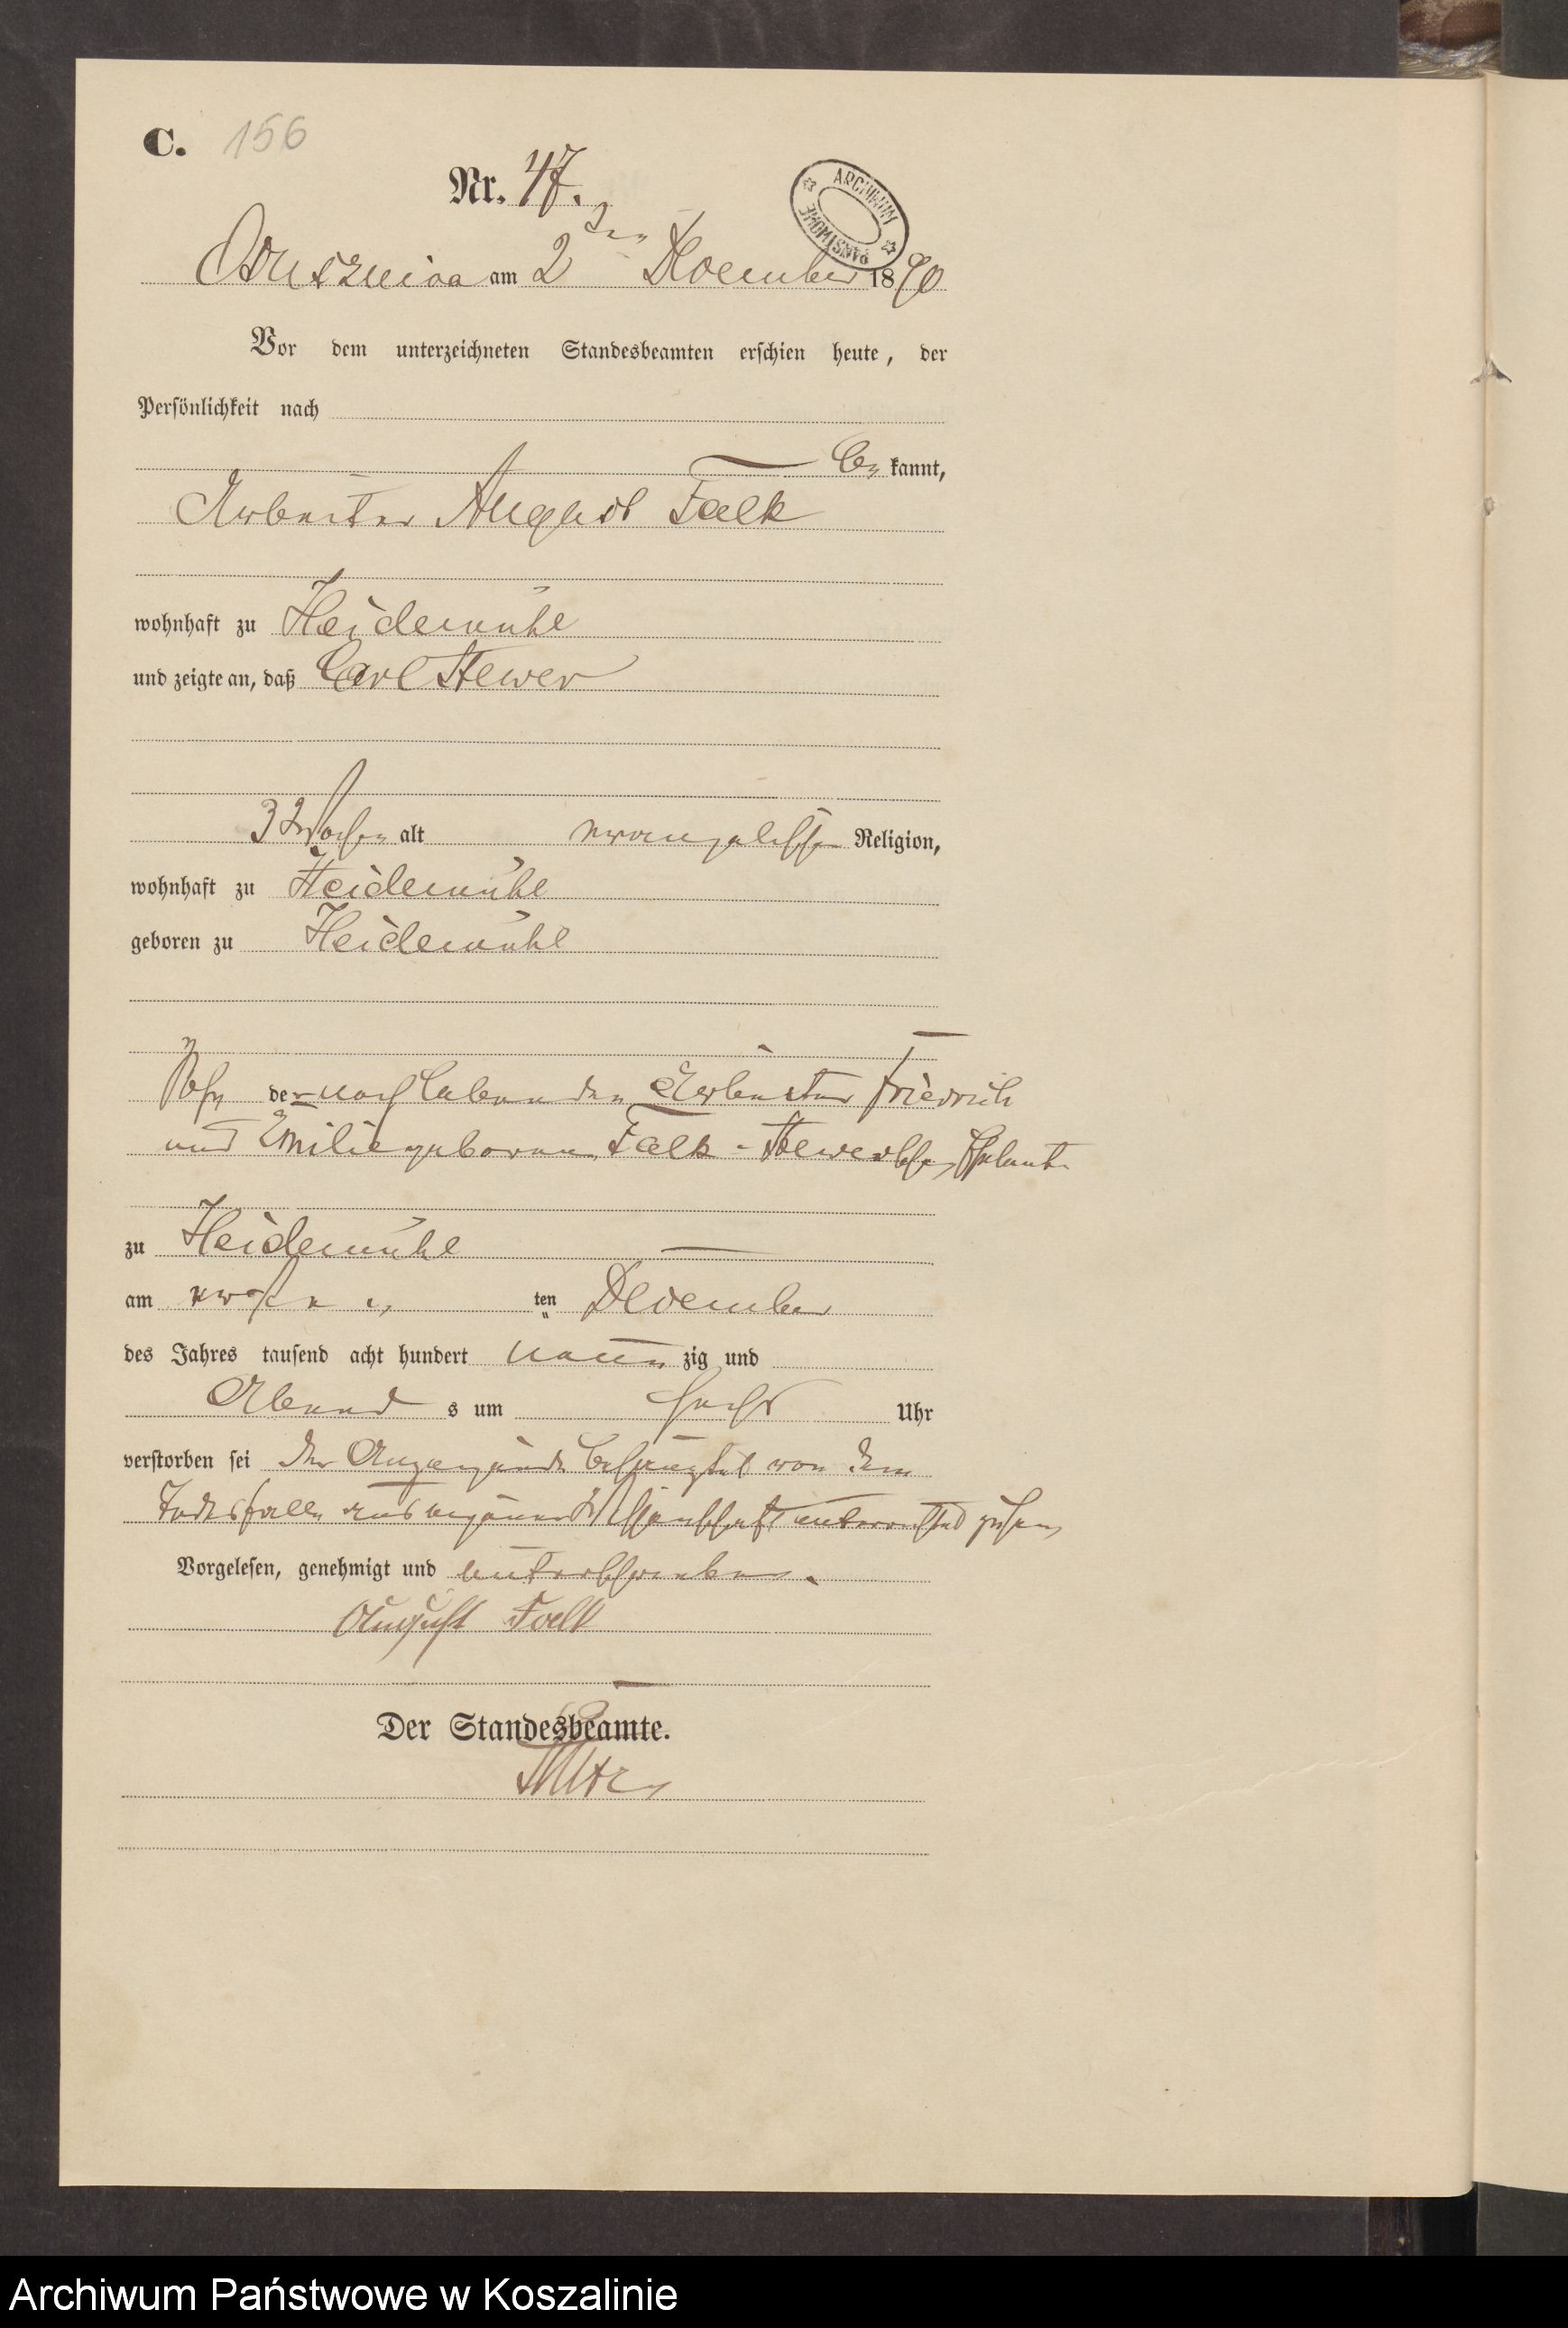 C. 156
Nr. 47.
ARCHIWUM PAŃSTWOWE
am 2ten December 1890
Vor dem unterzeichneten Standesbeamten erschien heute, der
Persönlichkeit nach
be kannt,
Arbeiter August Falk
wohnhaft zu Heidemühl
und zeigte an, daß Carl Stewer
3 Wochen alt evangelischer Religion,
wohnhaft zu Heidemühl
geboren zu Heidemühl
Sohn der noch lebenden Arbeiter Friedrich
und Emilie geborene Falk - Stewerschen Eheleute
zu Heidemühl
am ersten ten December
des Jahres tausend acht hundert neun zig und
Abend s um sechs Uhr
verstorben sei der Anzeigende von dem
Todesfalle aus eigener Wissenschaft unterrichtet zu sein
Vorgelesen, genehmigt und unterschrieben.
August Falk
Der Standesbeamte.
Archiwum Państwowe w Koszalinie